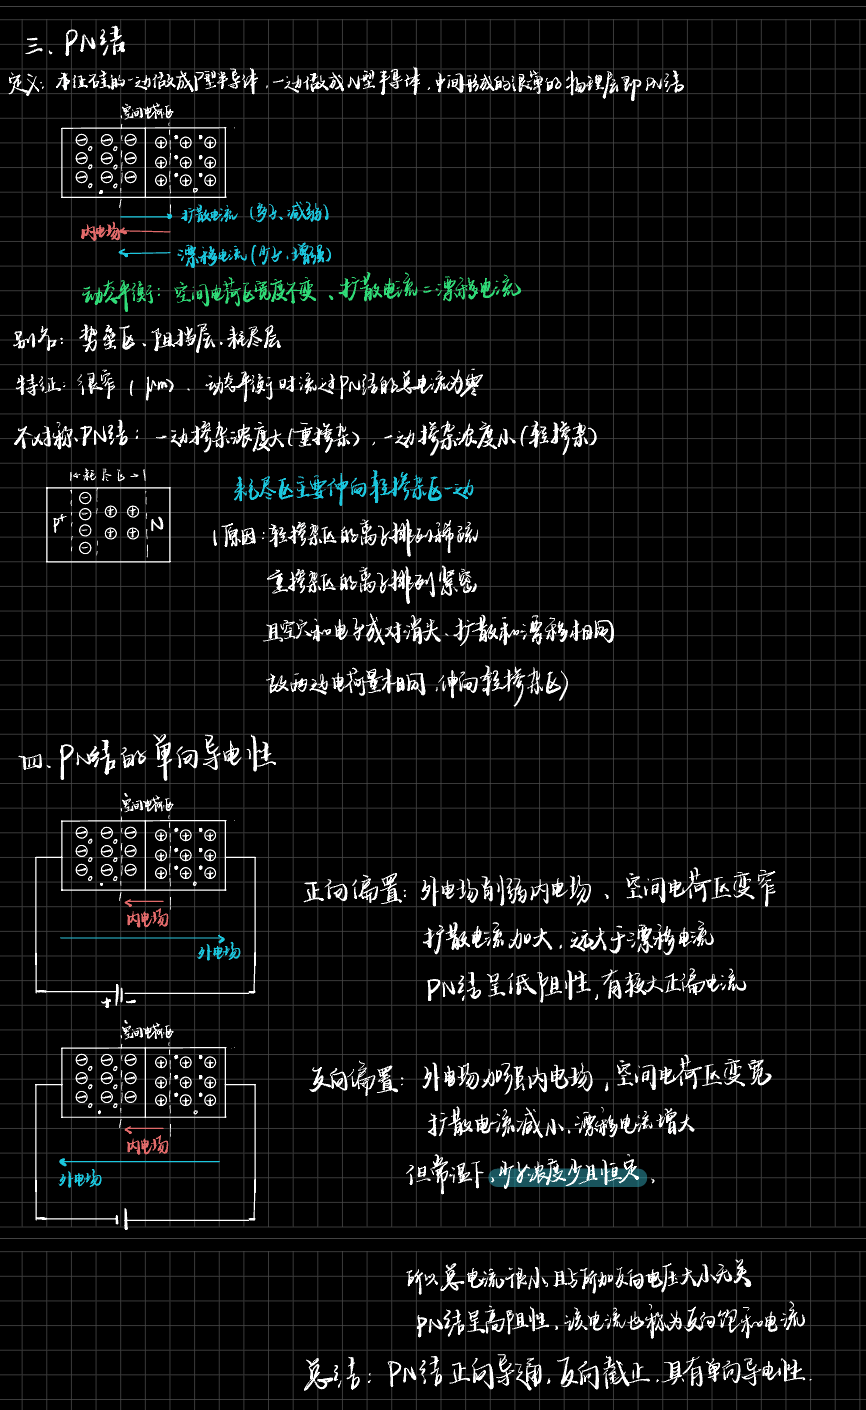 三、PN结
定义：本征硅的一边做成P型半导体，一边做成N型半导体，中间形成的很薄的物理层即PN结
空间电荷区
扩散电流（多子、减弱）
内电场
漂移电流（少子、增强）
动态平衡：空间电荷区宽度不变、扩散电流＝漂移电流
别名：势垒区、阻挡层、耗尽层
特征：很窄（μm）、动态平衡时流过PN结的总电流为零
不对称PN结：一边掺杂浓度大（重掺杂），一边掺杂浓度小（轻掺杂）
耗尽区
P+ N
耗尽区主要伸向轻掺杂区一边
（原因：轻掺杂区的离子排列稀疏
重掺杂区的离子排列紧密
且空穴和电子成对消失、扩散和漂移相同
故两边电荷量相同，伸向轻掺杂区）
四、PN结的单向导电性
空间电荷区
内电场
外电场
+ -
正向偏置：外电场削弱内电场、空间电荷区变窄
扩散电流加大，远大于漂移电流
PN结呈低阻性，有较大正偏电流
空间电荷区
内电场
外电场
反向偏置：外电场加强内电场，空间电荷区变宽
扩散电流减小、漂移电流增大
但常温下、少子浓度少且恒定、
所以总电流很小、且与所加反向电压大小无关
PN结呈高阻性，该电流也称为反向饱和电流
总结：PN结正向导通，反向截止，具有单向导电性.